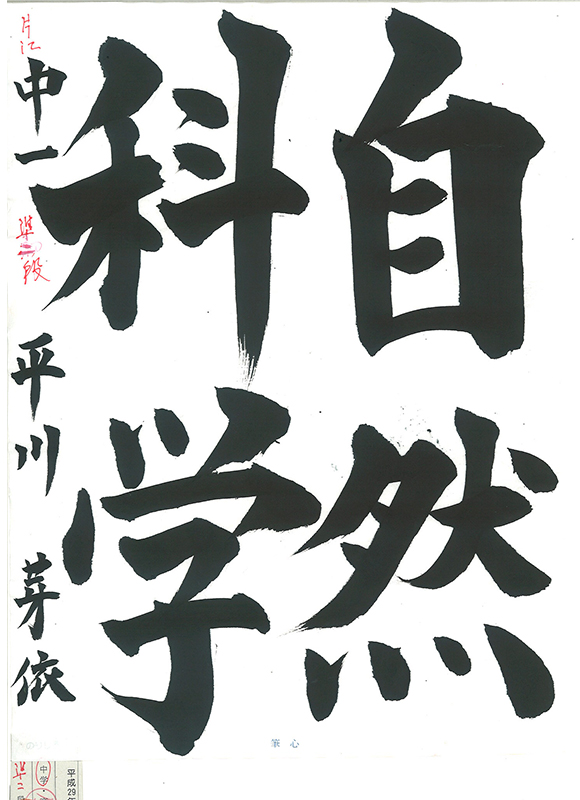 自然
科学
片江
中一
準二段
平川 芽依
筆心
平成29年
中学
準二